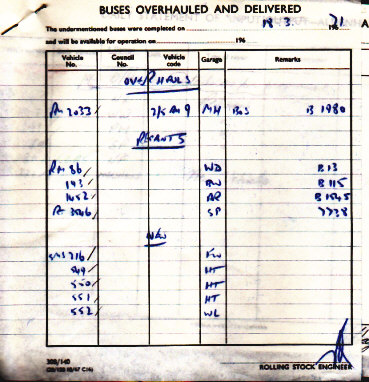 BUSES OVERHAULED AND DELIVERED
The undermentioned buses were completed on 18 3. 196 71
and will be available for operation on 196
Vehicle No. Council No. Vehicle code Garage Remarks
OVERHAULS
RM 2033 2/5 RM 9 MH BoS B 1980
REPAINTS
RM 86 WD B13
143 B 115
1652 AR B 1545
SP 7738
NEW
SMS 216 FW
549 HT
550 HT
551 HT
552 WL
308/140
ROLLING STOCK ENGINEER